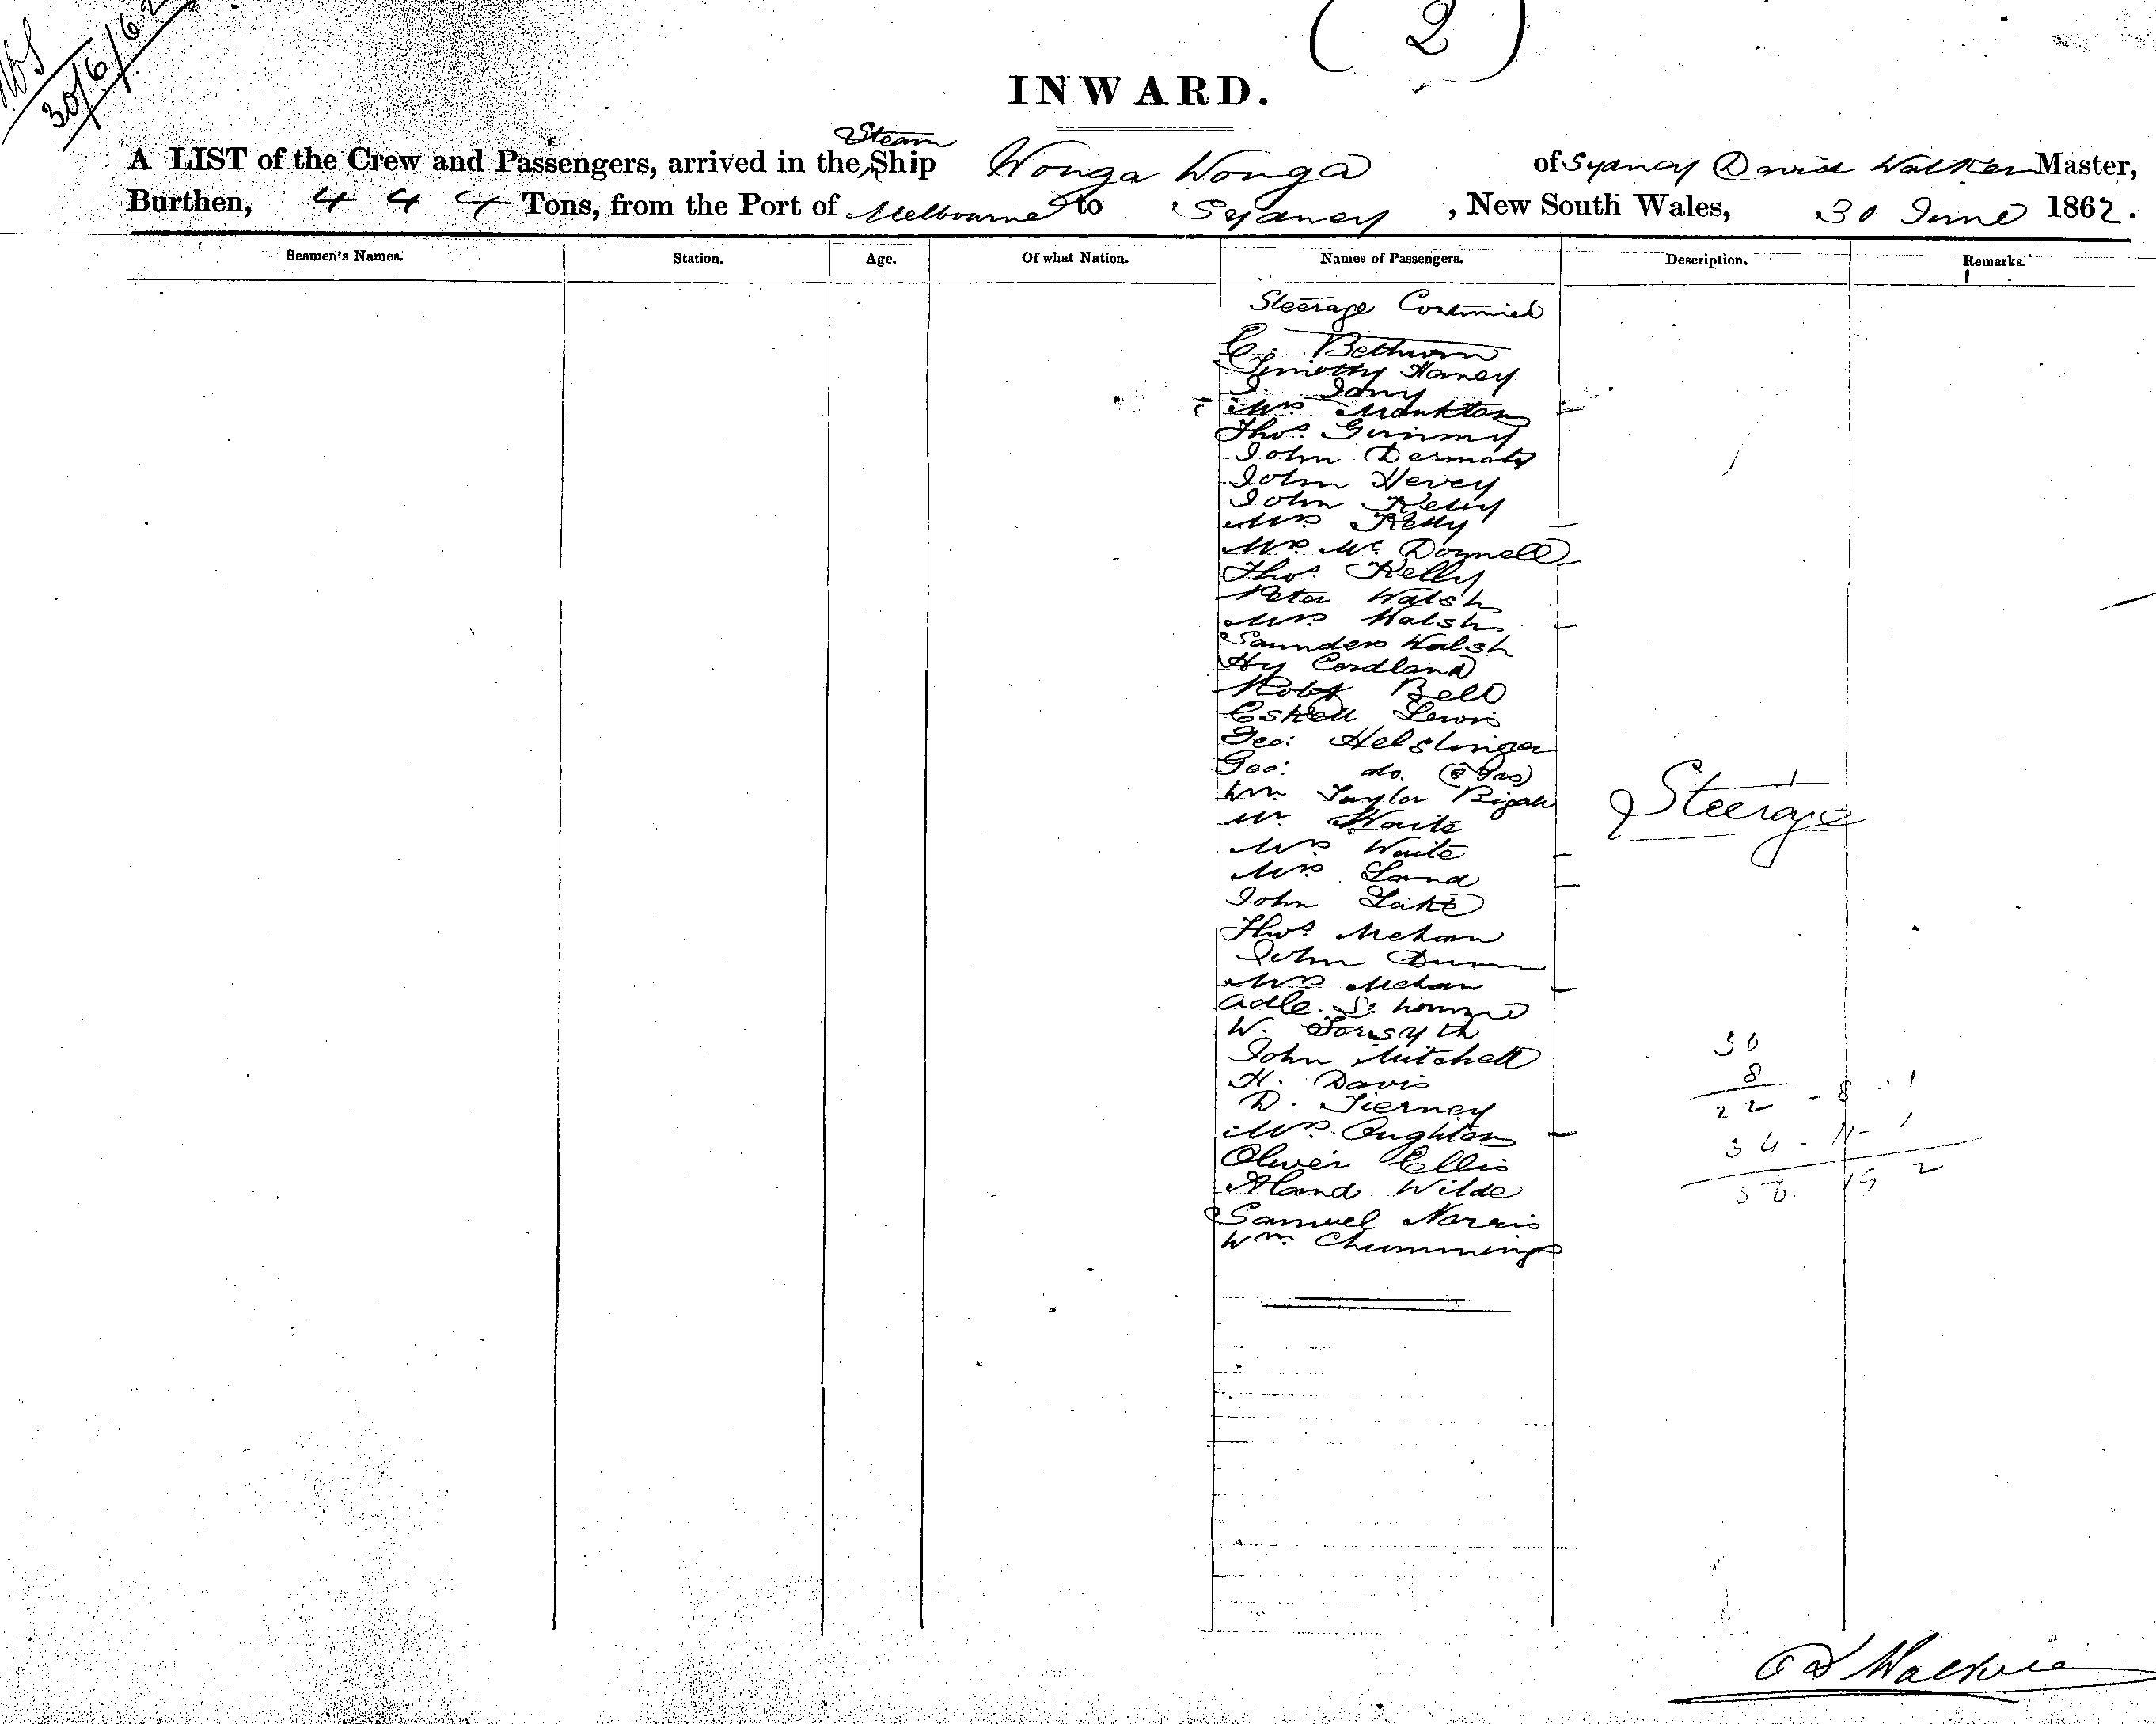 (2)
30/6/62
INWARD.
Steam
A LIST of the Crew and Passengers, arrived in the Ship Wonga Wonga of Sydney David Walker Master,
Burthen, 444 Tons, from the Port of Melbourne to Sydney, New South Wales, 30 June 1862.
Seamen's Names. Station. Age. Of what Nation. Names of Passengers. Description. Remarks.
Steerage Continued
Timothy Haney
Mrs Monkton
Thos.
John
John Hevey
John Kelly
Mrs Kelly
Mrs McDonnell
Thos. Kelly
Peter Walsh
Mrs Walsh
Saunders Walsh
Hy Cordland
Robt Bell
Lewis
Geo: Helslinger
Geo: do
Wm Taylor
Steerage
Mr Waite
Mrs Waite
Mrs Land
John Lake
Thos. Mehan
John Dunn
Mrs Mehan
W. Forsyth
John Mitchell
H. Davis
D. Tierney
Mrs. Oughton
Oliver Ellis
Wilde
Samuel Norris
Wm
30
8
22 - 8 - 1
34 - 11 - 1
56 19 2